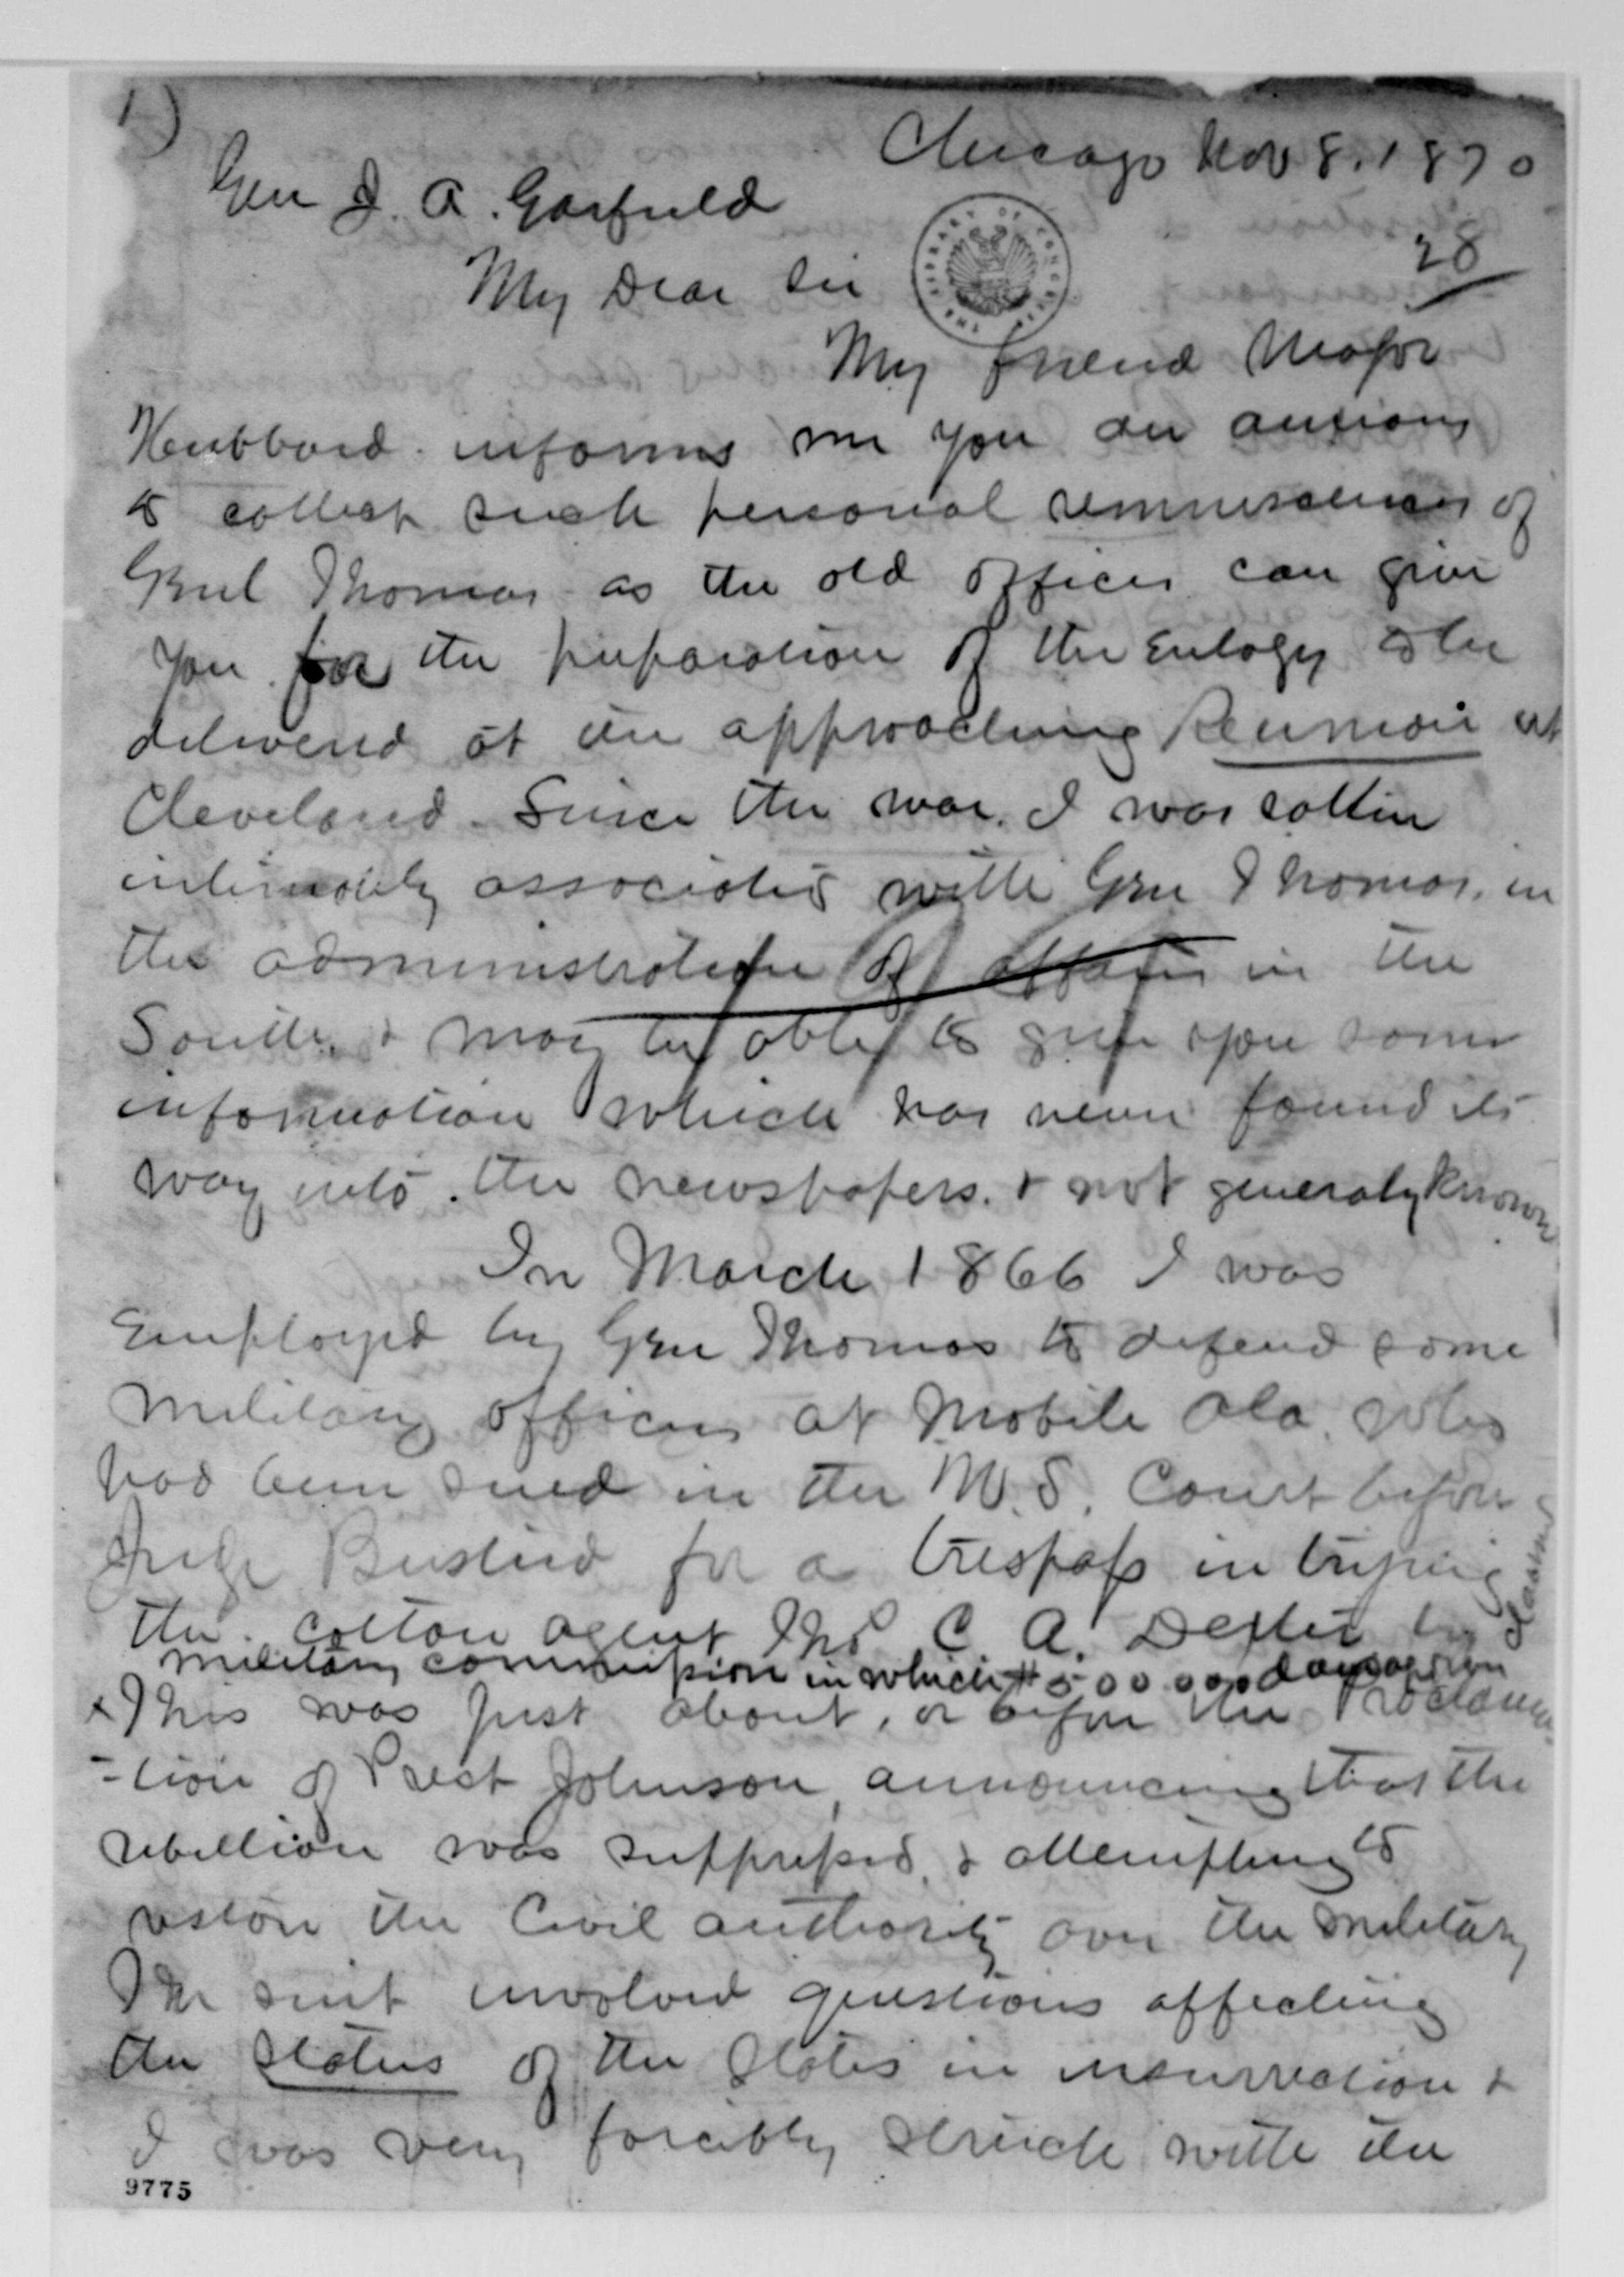 1)
Chicago Nov 8. 1870
Gen J. A. Garfield
28
My Dear Sir
THE LIBRARY OF CONGRESS
My friend Major
Hubbard informs me you are anxious
to collect such personal reminiscences of
Genl Thomas as the old officers can give
you for the preparation of the Eulogy to be
delivered at the approaching Reunion at
Cleveland. Since the war I was
intimately associated with Gen Thomas in
the administration of affairs in the
South, & may be able to give you some
information which has never found its
way into the newspapers. & not generaly known
In March 1866 I was
Employed by Gen Thomas to defend some
military officers at Mobile Ala. who
had been sued in the U.S. Court before
Judge Busteed for a trespass in trying
the cotton agent Thos C. A. Dexter by
military commission in which $500000 damages
& This was just about, or before the Proclama
-tion of Prest Johnson, announcing that the
rebellion was suppressed, & attempting to
restore the Civil authority over the military
The suit involved questions affecting
the status of the States in insurrection &
I was very forcibly struck with the
9775